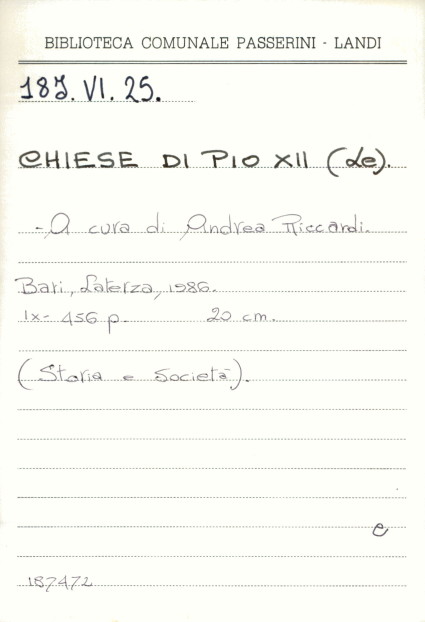 BIBLIOTECA COMUNALE PASSERINI - LANDI
18J. VI. 25.
CHIESE DI PIO XII (Le).
- A cura di Andrea Riccardi.
Bari, Laterza, 1986.
IX- 456 p. 20 cm.
(Storia e Società).
e
187472